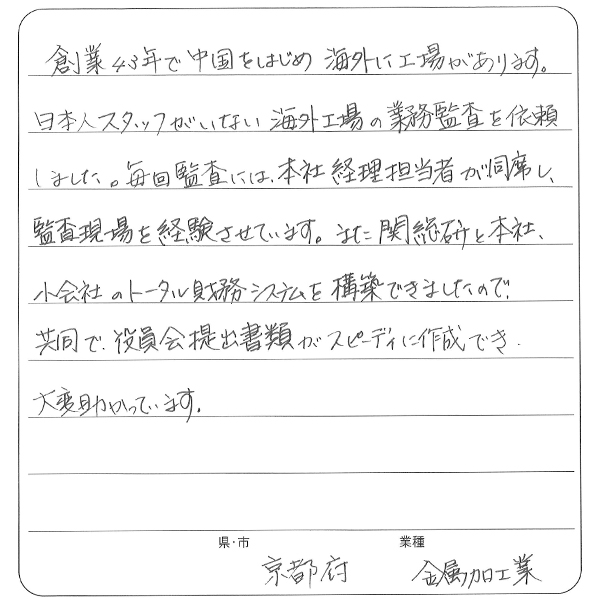 創業43年で中国をはじめ海外に工場があります。
日本人スタッフがいない海外工場の業務監査を依頼
しました。毎回監査には、本社経理担当者が同席し、
監査現場を経験させています。また関総研と本社、
小会社のトータル財務システムを構築できましたので、
共同で、役員会提出書類がスピーディに作成でき、
大変助かっています。
県・市 業種
京都府 金属加工業